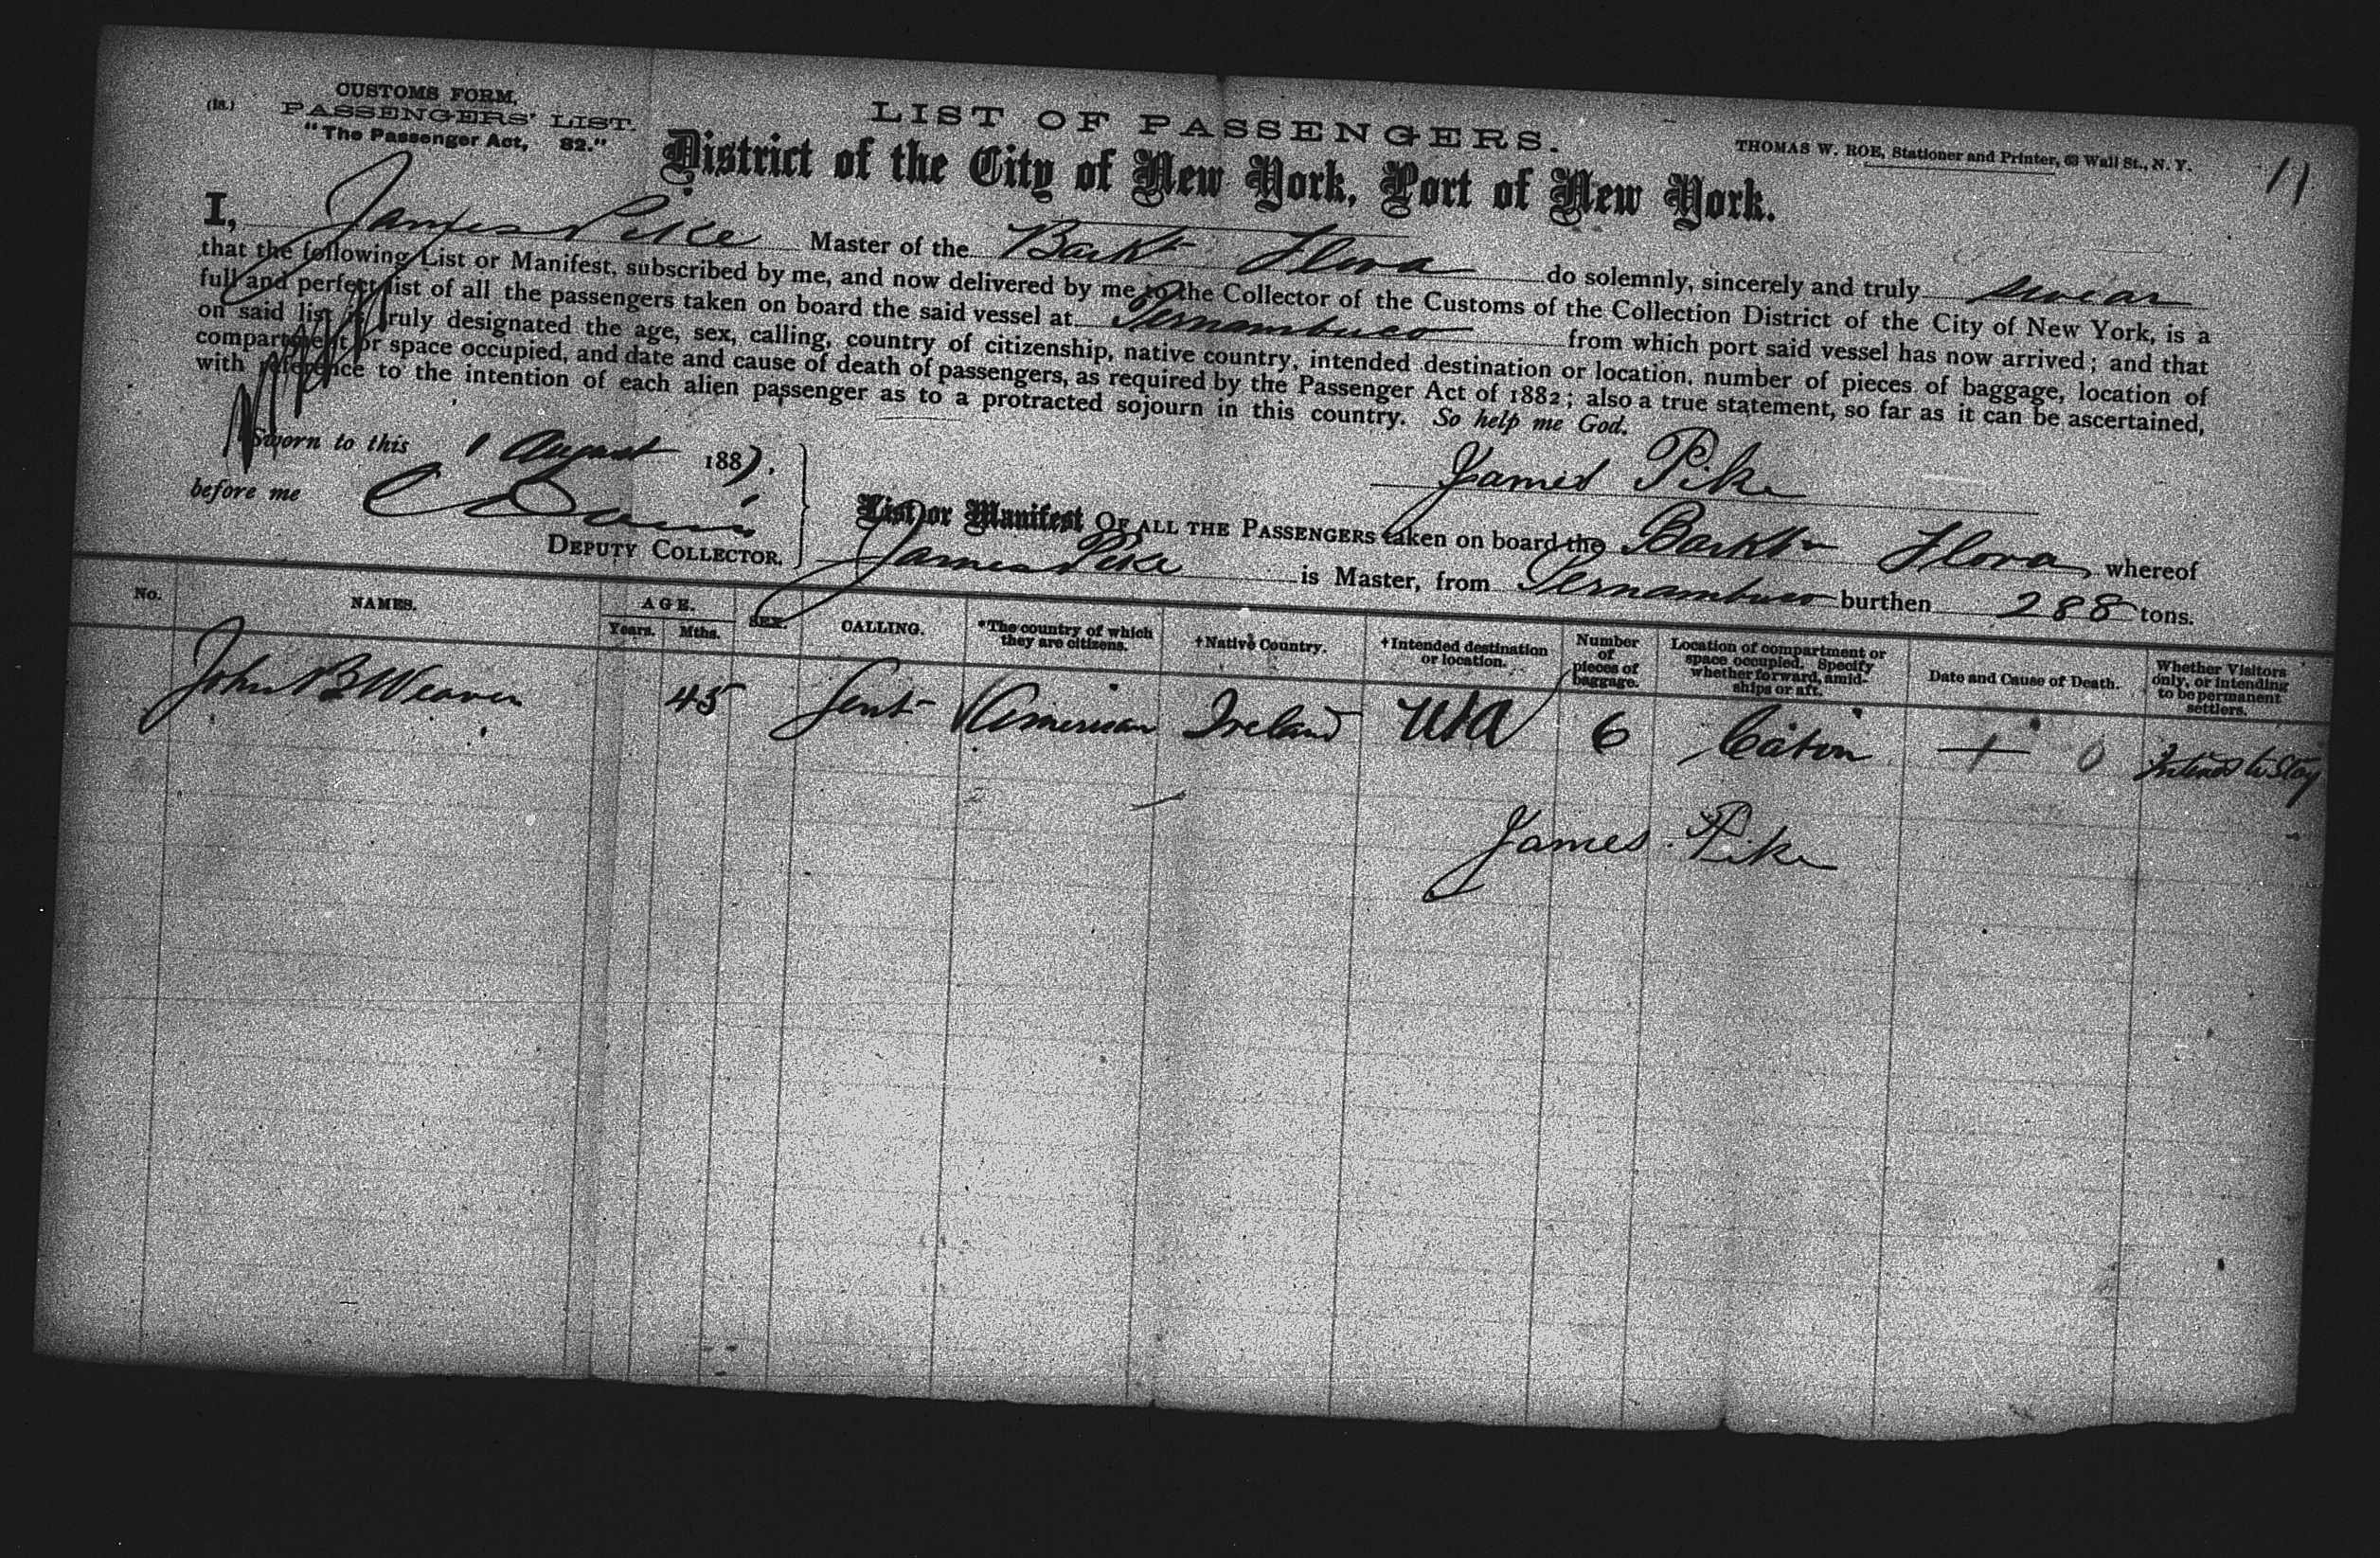 (18.)
CUSTOMS FORM,
PASSENGERS' LIST.
"The Passenger Act, 82."
LIST OF PASSENGERS.
District of the City of New York, Port of New York.
THOMAS W. ROE, Stationer and Printer, 63 Wall St., N. Y.
11
I, James Pike Master of the Barkt Flora do solemnly, sincerely and truly swear
that the following List or Manifest, subscribed by me, and now delivered by me to the Collector of the Customs of the Collection District of the City of New York, is a
full and perfect list of all the passengers taken on board the said vessel at Pernambuco from which port said vessel has now arrived; and that
on said list is truly designated the age, sex, calling, country of citizenship, native country, intended destination or location, number of pieces of baggage, location of
compartment or space occupied, and date and cause of death of passengers, as required by the Passenger Act of 1882; also a true statement, so far as it can be ascertained,
with reference to the intention of each alien passenger as to a protracted sojourn in this country. So help me God.
Sworn to this 1 August 1887.
James Pike
before me C Davis
DEPUTY COLLECTOR.
List or Manifest OF ALL THE PASSENGERS taken on board the Barktn Flora whereof
James Pike is Master, from Pernambuco burthen 288 tons.
No. NAMES. AGE. Years. Mths. SEX. CALLING. *The country of which they are citizens. †Native Country. †Intended destination or location. Number of pieces of baggage. Location of compartment or space occupied. Specify whether forward, amidships or aft. Date and Cause of Death. Whether Visitors only, or intending to be permanent settlers.
John B Weaver 45 Gent American Ireland USA 6 Cabin + 0 Intends to Stay
James Pike